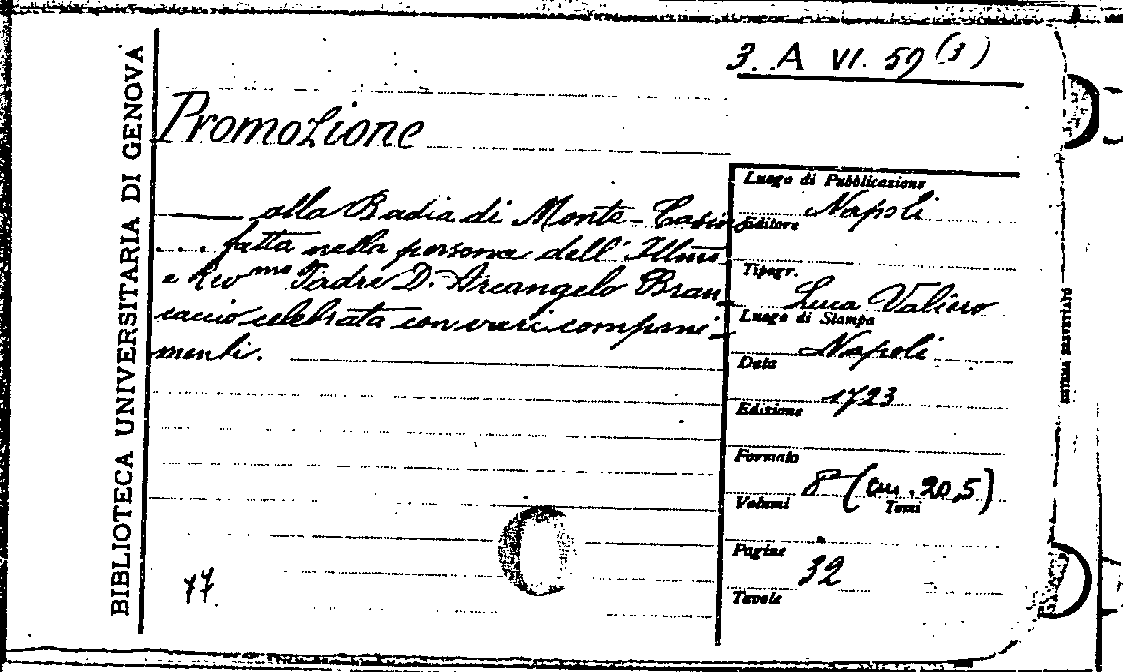 BIBLIOTECA UNIVERSITARIA DI GENOVA
3. A VI. 59 (3)
Promozione
alla Badia di Monte-Casino
... fatta nella persona dell' Illmo
e Revmo Padre D. Arcangelo Bran-
caccio celebrata con vari componi-
menti.
Luogo di Pubblicazione
Napoli
Editore
Tipogr.
Luca Valiero
Luogo di Stampa
Napoli
Data
1723
Edizione
Formato
8° (cm. 20,5)
Volumi Tomi
Pagine
32
Tavole
77.